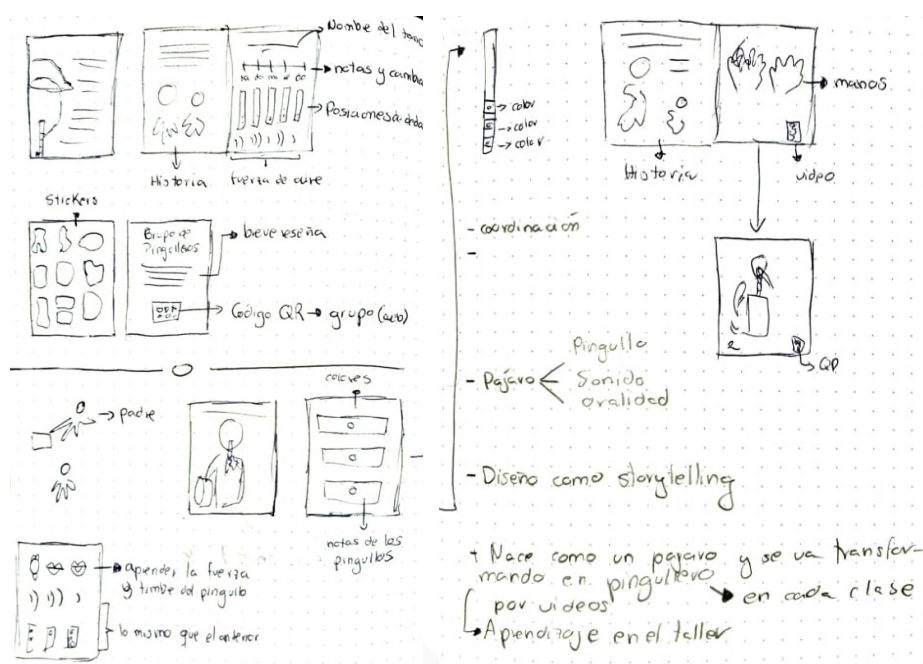 Nombre del
notas y cambia
Posiciones de onda
Historia
fuerza de aire
Stickers
Grupo de
Pingulleros
breve reseña
Código QR → grupo (auto)
colores
padre
notas de los
pingullos
aprender la fuerza
y timbre del pingullo
lo mismo que el anterior
color
color
color
manos
Historia
video
- coordinación
-
2
QR
Pingullo
- Pájaro < Sonido
oralidad
- Diseño como storytelling
+ Nace como un pajaro y se va transfor-
mando en pingullero
por videos
en cada clase
Aprendizaje en el taller